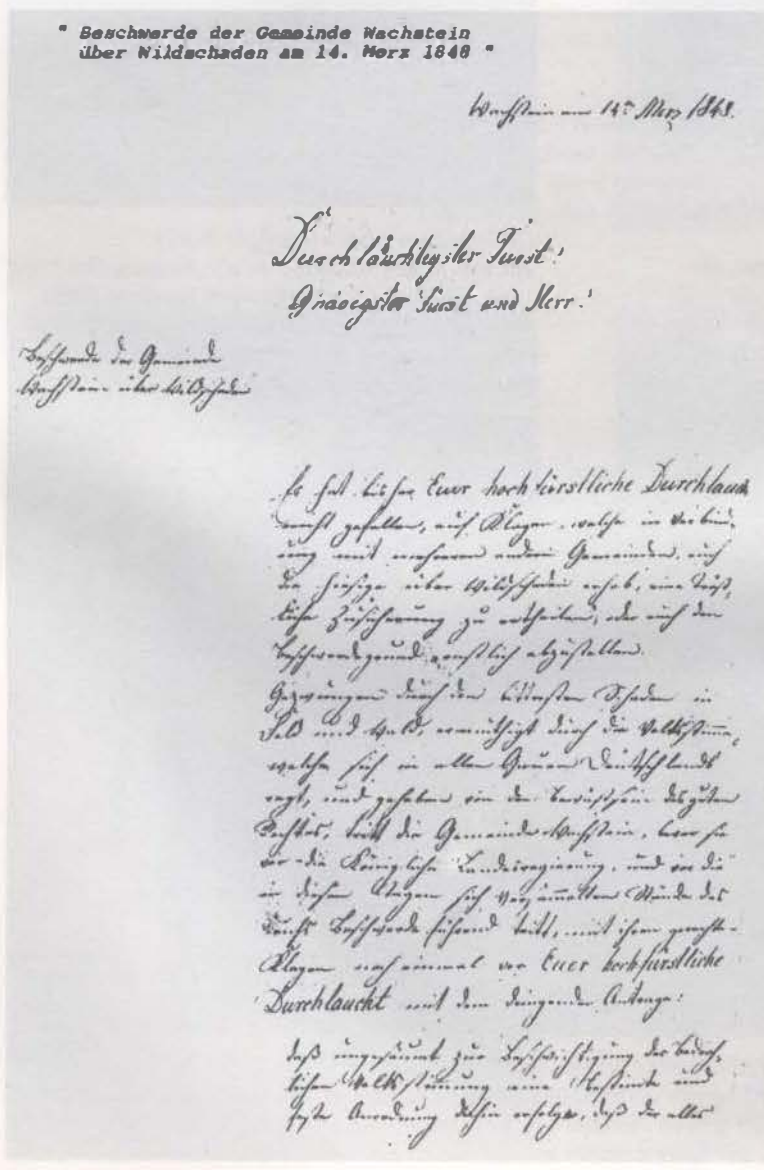 " Beschwerde der Gemeinde Wachstein
über Wildschaden am 14. Merz 1848 "
Wachstein am 14ᵗ Merz 1848.
Durchläuchtigster Fürst!
Gnädigster Fürst und Herr!
Beschwerde der Gemeinde
Wachstein über Wildschaden
Es hat bisher Euer hochfürstliche Durchlaucht
nicht gefallen, auf Klagen, welche in Verbind-
ung mit mehreren andern Gemeinden, auch
die hiesige über Wildschaden erhob, eine tröst-
liche Zusicherung zu ertheilen, oder auch den
Beschwerdegrund ernstlich abzustellen.
Gezwungen durch den Schaden in
Feld und Wald, ermuthigt durch die Volksstimme,
welche sich in allen Gauen Deutschlands
regt, und gehoben von dem Bewußtsein des guten
Rechtes, tritt die Gemeinde Wachstein, bevor sie
vor die Königliche Landesregierung, und vor die
in diesen Tagen sich versammelten Stände des
Reichs Beschwerde führend tritt, mit ihren gerechten
Klagen noch einmal vor Euer hochfürstliche
Durchlaucht mit dem dringenden Antrage:
daß ungesäumt zur Beschwichtigung der bedroh-
lichen Volksstimmung eine bestimmte und
feste Anordnung dahin erfolge, daß der alles